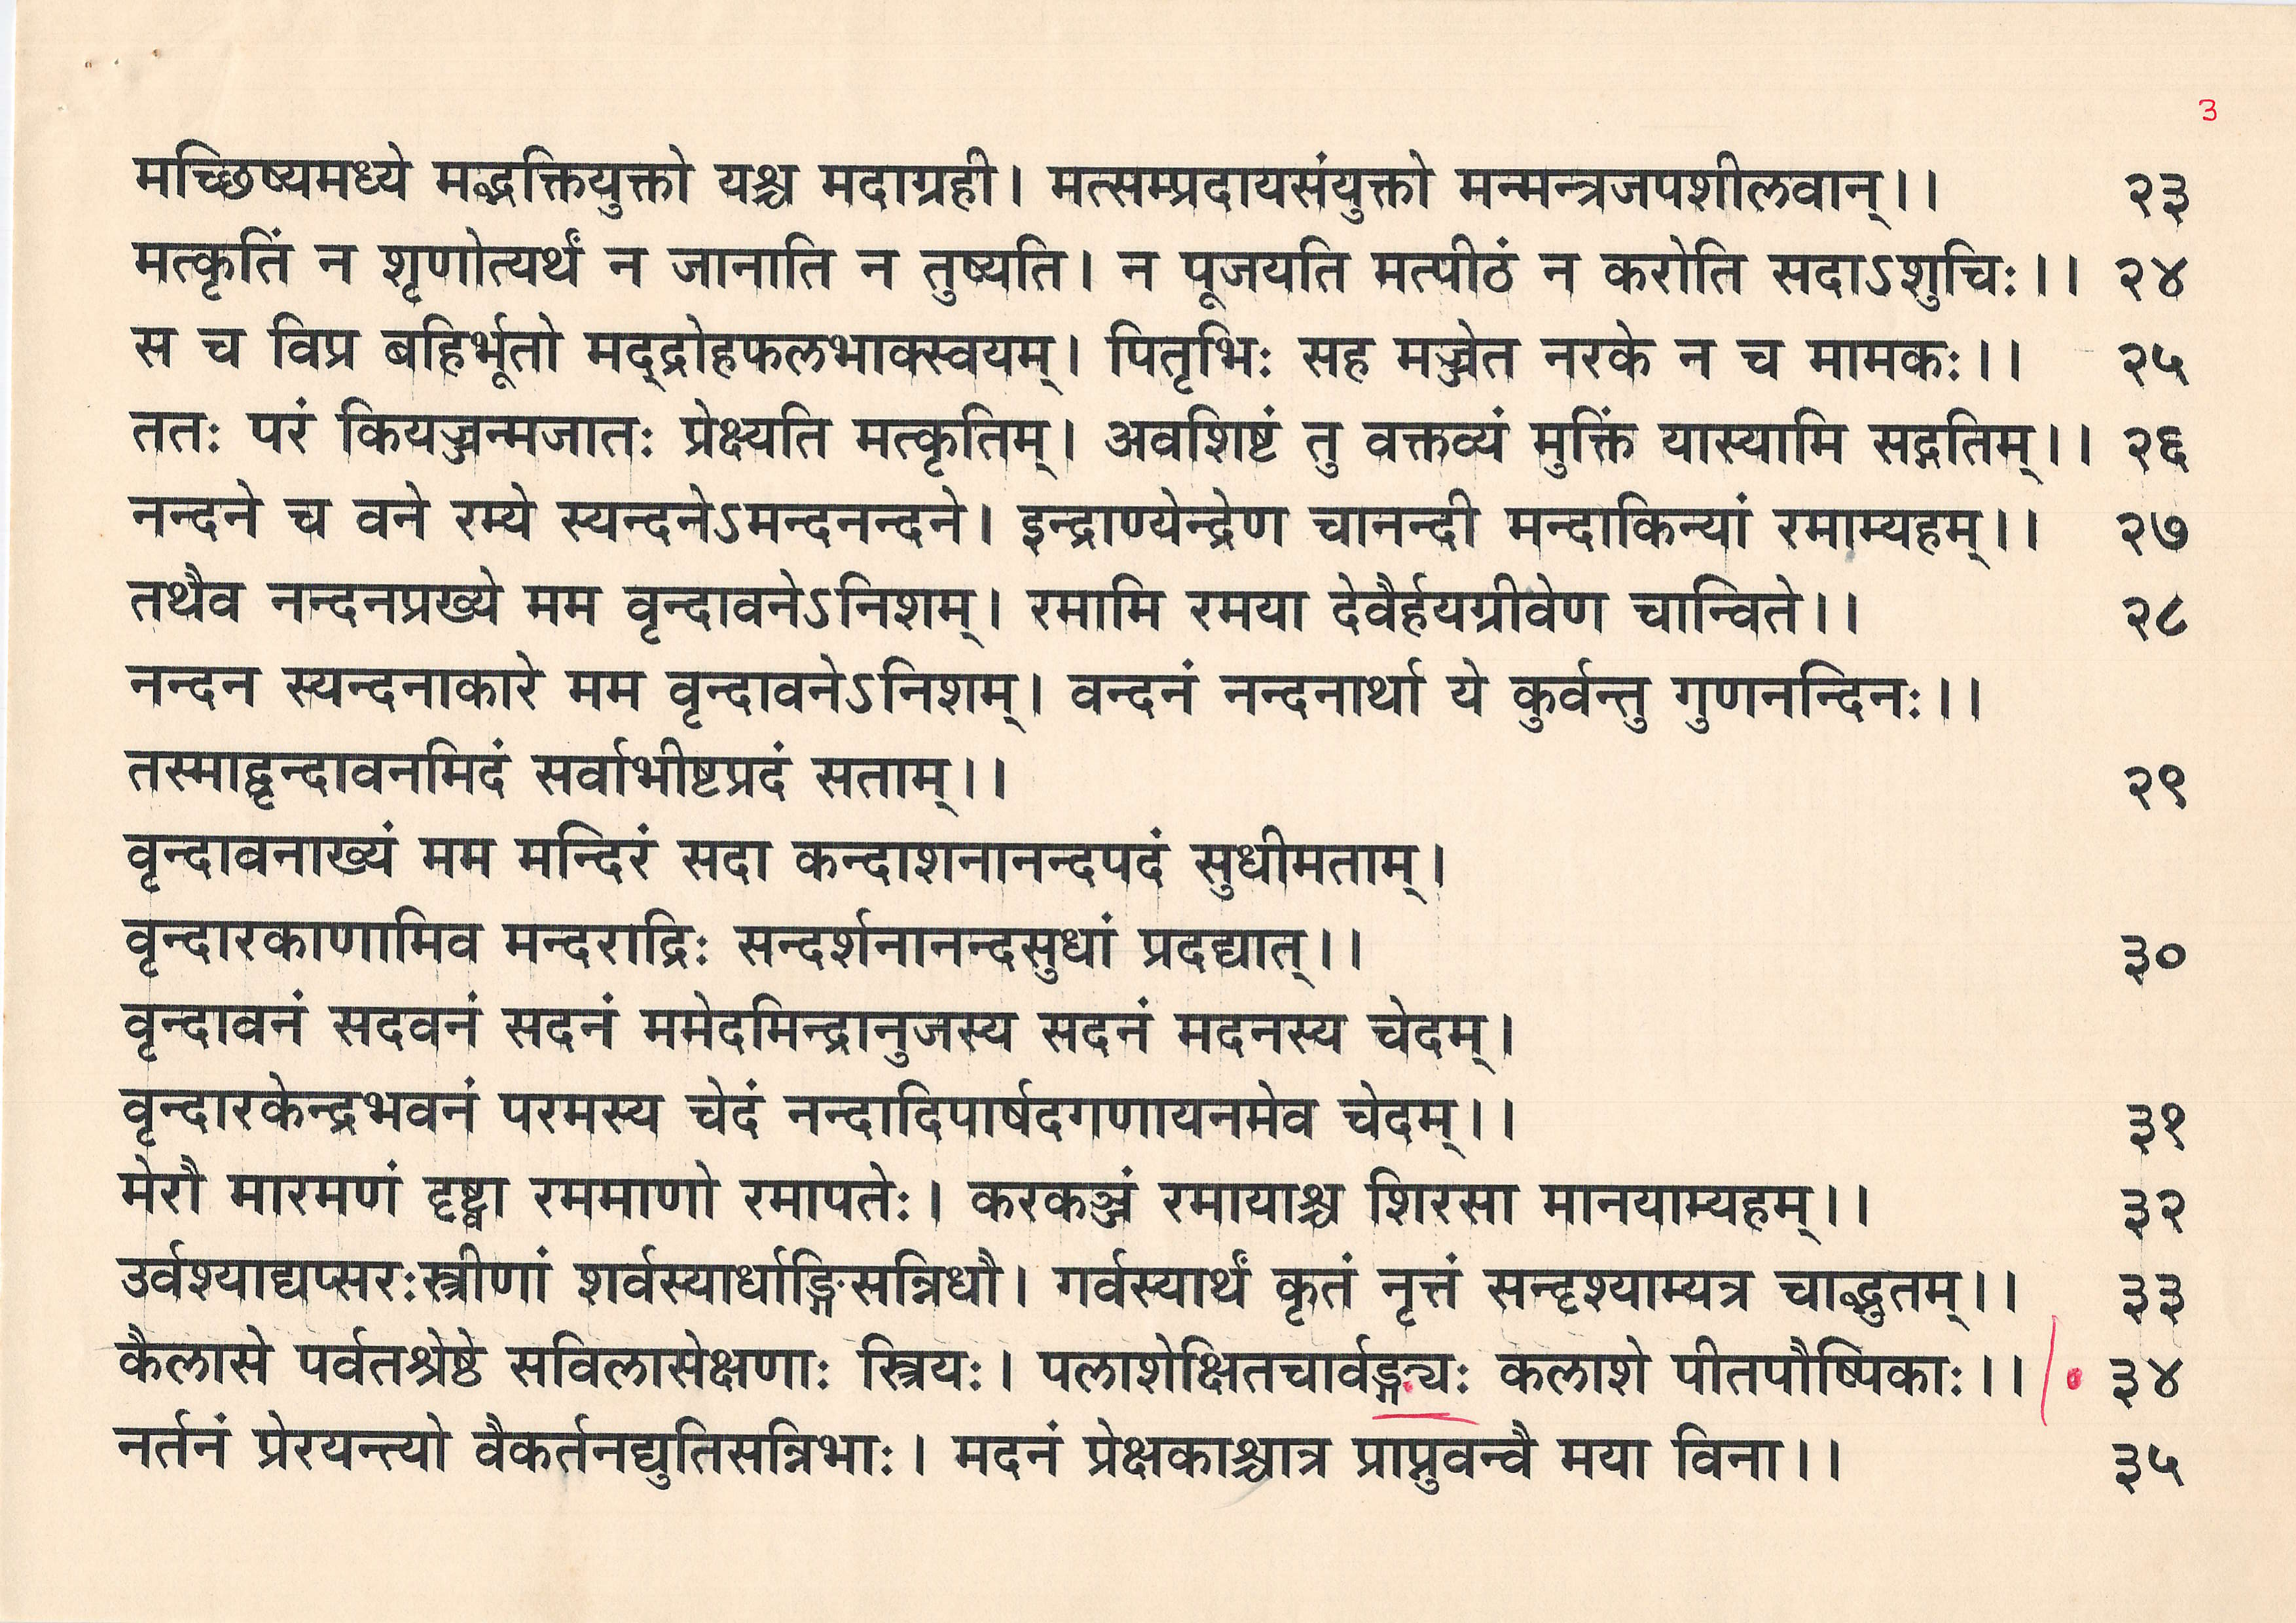 3
मच्छिष्यमध्ये मद्भक्तियुक्तो यश्च मदाग्रही। मत्सम्प्रदायसंयुक्तो मन्मन्त्रजपशीलवान्।। २३
मत्कृतिं न शृणोत्यर्थं न जानाति न तुष्यति। न पूजयति मत्पीठं न करोति सदाऽशुचिः।। २४
स च विप्र बहिर्भूतो मद्‌द्रोहफलभाक्स्वयम्। पितृभिः सह मज्जेत नरके न च मामकः।। २५
ततः परं कियज्जन्मजातः प्रेक्ष्यति मत्कृतिम्। अवशिष्टं तु वक्तव्यं मुक्तिं यास्यामि सद्गतिम्।। २६
नन्दने च वने रम्ये स्यन्दनेऽमन्दनन्दने। इन्द्राण्येन्द्रेण चानन्दी मन्दाकिन्यां रमाम्यहम्।। २७
तथैव नन्दनप्रख्ये मम वृन्दावनेऽनिशम्। रमामि रमया देवैर्हयग्रीवेण चान्विते।। २८
नन्दन स्यन्दनाकारे मम वृन्दावनेऽनिशम्। वन्दनं नन्दनार्था ये कुर्वन्तु गुणनन्दिनः।।
तस्माद्वृन्दावनमिदं सर्वाभीष्टप्रदं सताम्।। २९
वृन्दावनाख्यं मम मन्दिरं सदा कन्दाशनानन्दपदं सुधीमताम्।
वृन्दारकाणामिव मन्दराद्रिः सन्दर्शनानन्दसुधां प्रदद्यात्।। ३०
वृन्दावनं सदवनं सदनं ममेदमिन्द्रानुजस्य सदनं मदनस्य चेदम्।
वृन्दारकेन्द्रभवनं परमस्य चेदं नन्दादिपार्षदगणायनमेव चेदम्।। ३१
मेरौ मारमणं दृष्ट्वा रममाणो रमापतेः। करकञ्जं रमायाश्च शिरसा मानयाम्यहम्।। ३२
उर्वश्याद्यप्सरःस्त्रीणां शर्वस्यार्धाङ्गिसन्निधौ। गर्वस्यार्थं कृतं नृत्तं सन्दृश्याम्यत्र चाद्भुतम्।। ३३
कैलासे पर्वतश्रेष्ठे सविलासेक्षणाः स्त्रियः। पलाशेक्षितचार्वङ्ग्यः कलाशे पीतपौष्पिकाः।। ३४
नर्तनं प्रेरयन्त्यो वैकर्तनद्युतिसन्निभाः। मदनं प्रेक्षकाश्चात्र प्राप्नुवन्वै मया विना।। ३५